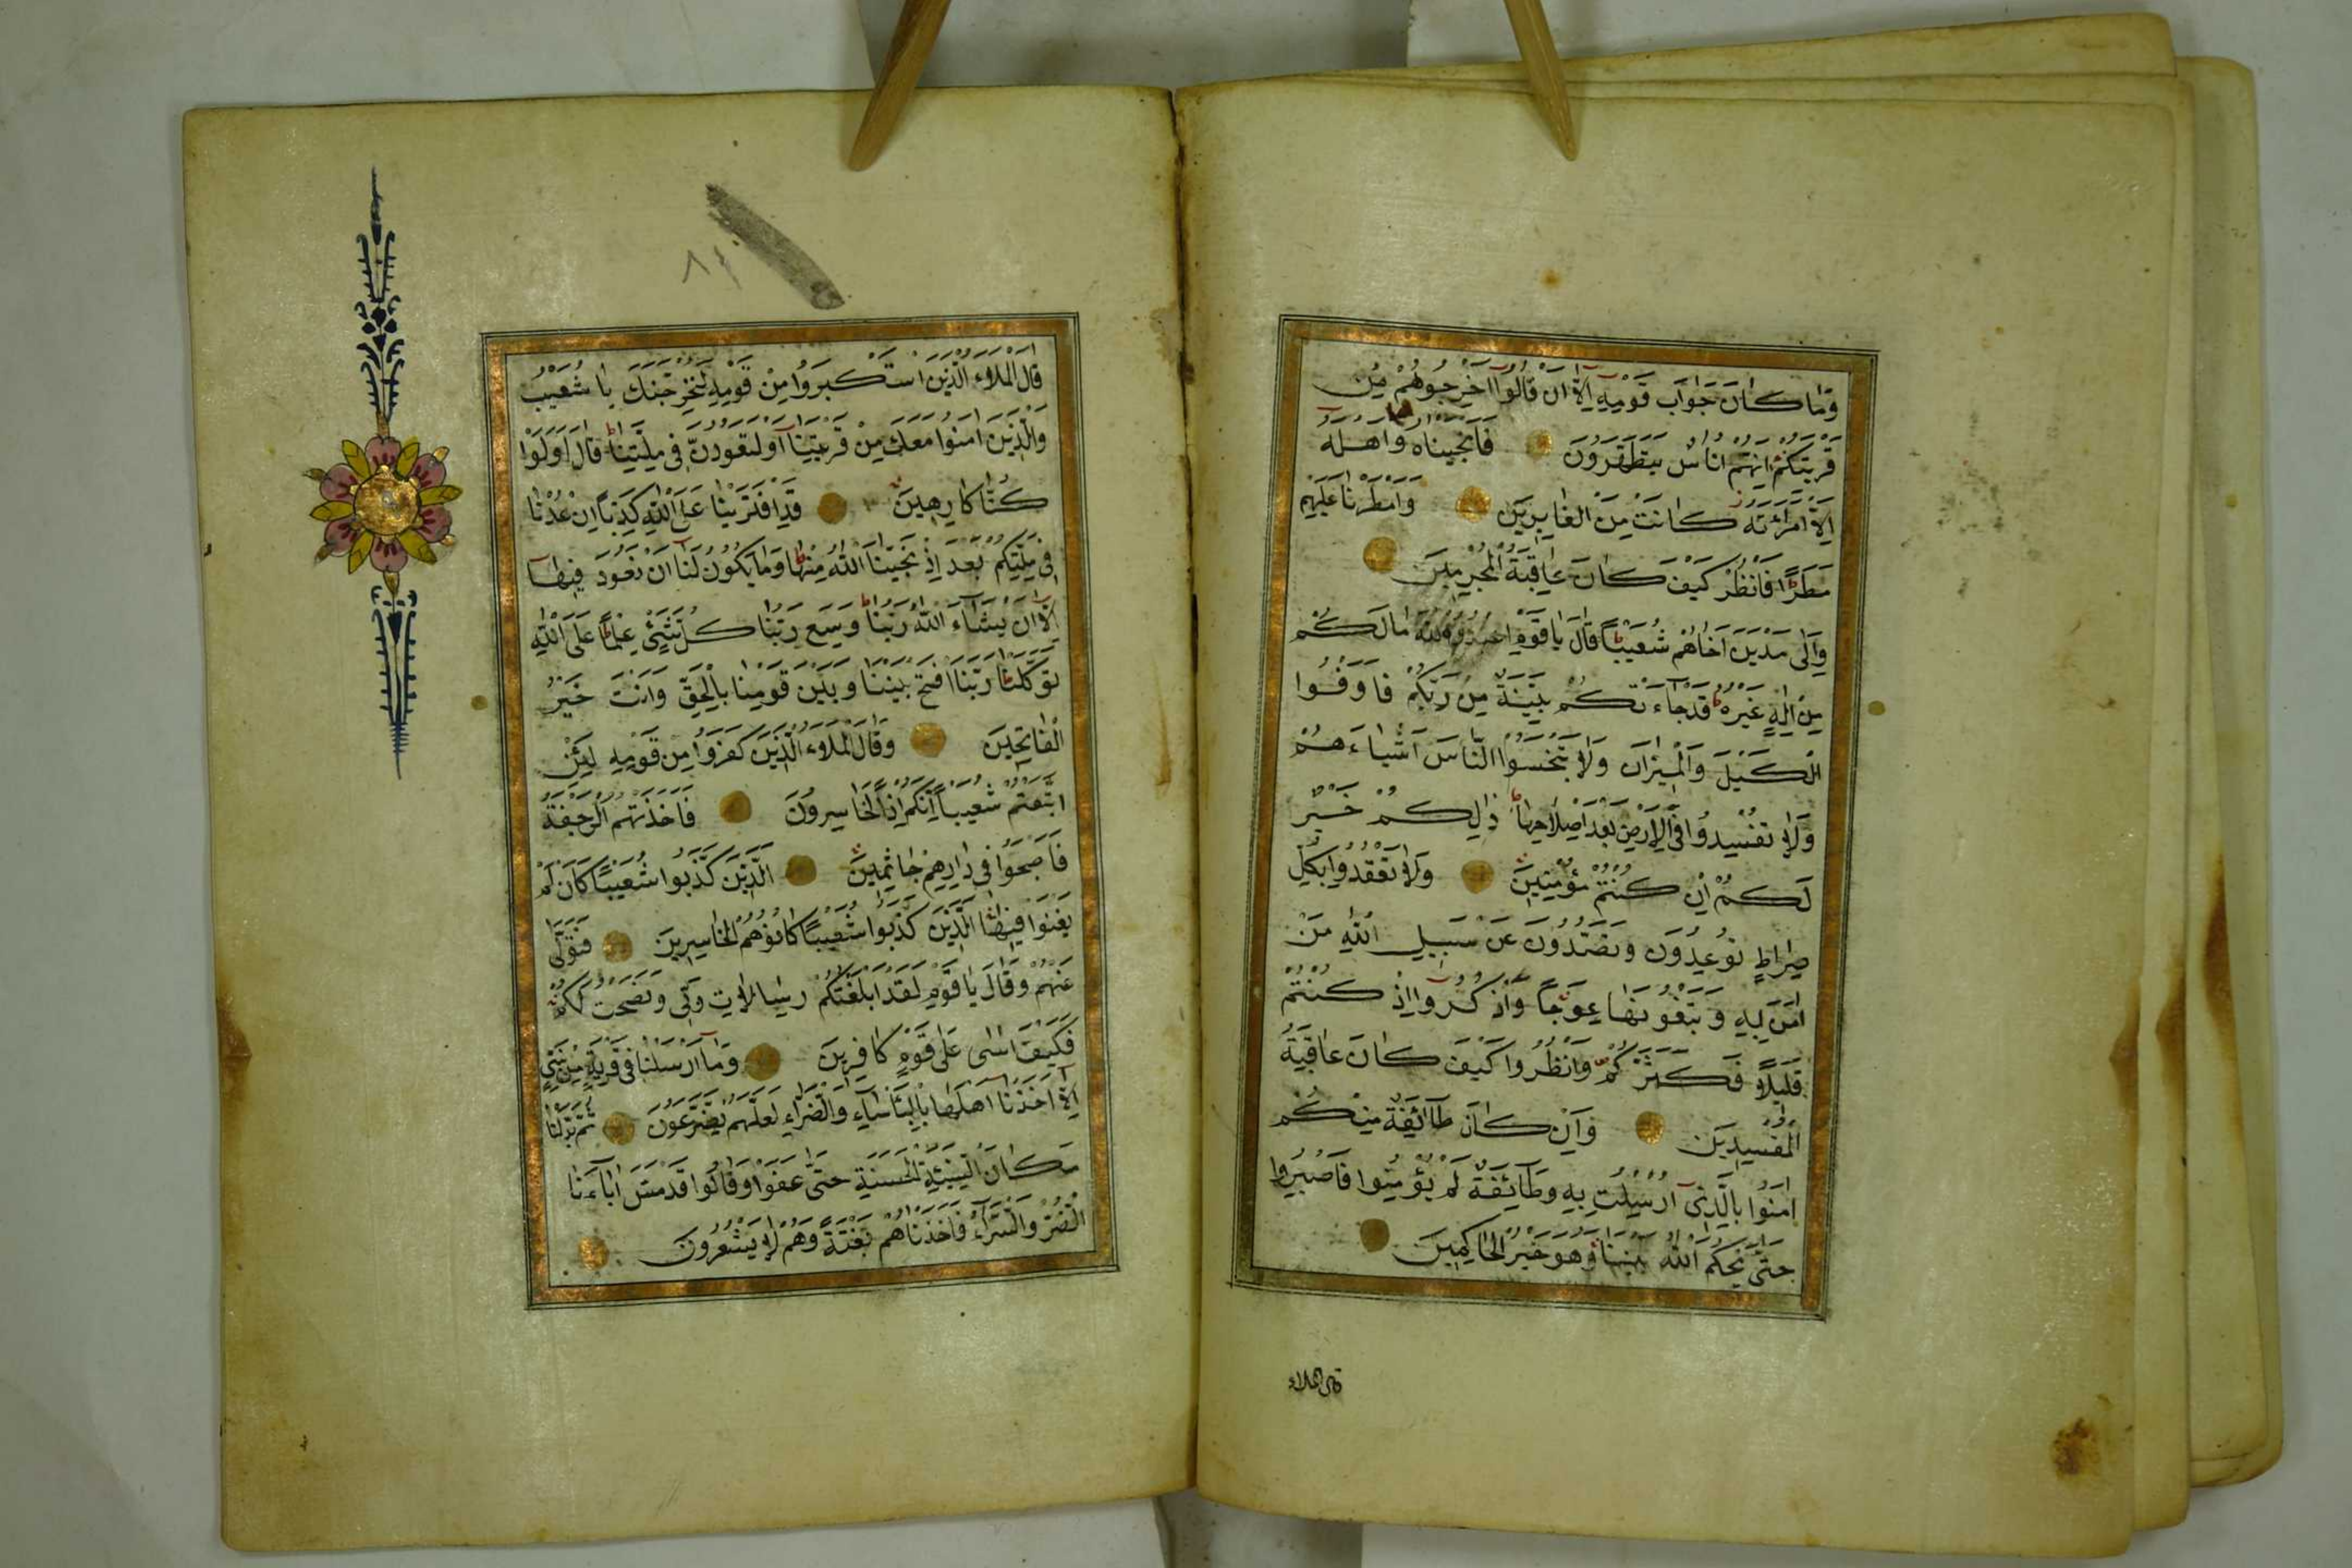 وَمَا كَانَ جَوَابَ قَوْمِهِ اِلَّا اَنْ قَالُوا اَخْرِجُوهُمْ مِنْ
قَرْيَتِكُمْ اِنَّهُمْ اُنَاسٌ يَتَطَهَّرُونَ فَاَنْجَيْنَاهُ وَاَهْلَهُ
اِلَّا امْرَاَتَهُ كَانَتْ مِنَ الْغَابِرِينَ وَاَمْطَرْنَا عَلَيْهِمْ
مَطَرًا فَانْظُرْ كَيْفَ كَانَ عَاقِبَةُ الْمُجْرِمِينَ
وَاِلٰى مَدْيَنَ اَخَاهُمْ شُعَيْبًا قَالَ يَا قَوْمِ اعْبُدُوا اللّٰهَ مَا لَكُمْ
مِنْ اِلٰهٍ غَيْرُهُ قَدْ جَاءَتْكُمْ بَيِّنَةٌ مِنْ رَبِّكُمْ فَاَوْفُوا
الْكَيْلَ وَالْمِيزَانَ وَلَا تَبْخَسُوا النَّاسَ اَشْيَاءَهُمْ
وَلَا تُفْسِدُوا فِي الْاَرْضِ بَعْدَ اِصْلَاحِهَا ذٰلِكُمْ خَيْرٌ
لَكُمْ اِنْ كُنْتُمْ مُؤْمِنِينَ وَلَا تَقْعُدُوا بِكُلِّ
صِرَاطٍ تُوعِدُونَ وَتَصُدُّونَ عَنْ سَبِيلِ اللّٰهِ مَنْ
اٰمَنَ بِهِ وَتَبْغُونَهَا عِوَجًا وَاذْكُرُوا اِذْ كُنْتُمْ
قَلِيلًا فَكَثَّرَكُمْ وَانْظُرُوا كَيْفَ كَانَ عَاقِبَةُ
الْمُفْسِدِينَ وَاِنْ كَانَ طَائِفَةٌ مِنْكُمْ
اٰمَنُوا بِالَّذِي اُرْسِلْتُ بِهِ وَطَائِفَةٌ لَمْ يُؤْمِنُوا فَاصْبِرُوا
حَتّٰى يَحْكُمَ اللّٰهُ بَيْنَنَا وَهُوَ خَيْرُ الْحَاكِمِينَ
قال الملاء
٨١
قَالَ الْمَلَاُ الَّذِينَ اسْتَكْبَرُوا مِنْ قَوْمِهِ لَنُخْرِجَنَّكَ يَا شُعَيْبُ
وَالَّذِينَ اٰمَنُوا مَعَكَ مِنْ قَرْيَتِنَا اَوْ لَتَعُودُنَّ فِي مِلَّتِنَا قَالَ اَوَلَوْ
كُنَّا كَارِهِينَ قَدِ افْتَرَيْنَا عَلَى اللّٰهِ كَذِبًا اِنْ عُدْنَا
فِي مِلَّتِكُمْ بَعْدَ اِذْ نَجّٰينَا اللّٰهُ مِنْهَا وَمَا يَكُونُ لَنَا اَنْ نَعُودَ فِيهَا
اِلَّا اَنْ يَشَاءَ اللّٰهُ رَبُّنَا وَسِعَ رَبُّنَا كُلَّ شَيْءٍ عِلْمًا عَلَى اللّٰهِ
تَوَكَّلْنَا رَبَّنَا افْتَحْ بَيْنَنَا وَبَيْنَ قَوْمِنَا بِالْحَقِّ وَاَنْتَ خَيْرُ
الْفَاتِحِينَ وَقَالَ الْمَلَاُ الَّذِينَ كَفَرُوا مِنْ قَوْمِهِ لَئِنِ
اتَّبَعْتُمْ شُعَيْبًا اِنَّكُمْ اِذًا لَخَاسِرُونَ فَاَخَذَتْهُمُ الرَّجْفَةُ
فَاَصْبَحُوا فِي دَارِهِمْ جَاثِمِينَ اَلَّذِينَ كَذَّبُوا شُعَيْبًا كَاَنْ لَمْ
يَغْنَوْا فِيهَا الَّذِينَ كَذَّبُوا شُعَيْبًا كَانُوا هُمُ الْخَاسِرِينَ فَتَوَلّٰى
عَنْهُمْ وَقَالَ يَا قَوْمِ لَقَدْ اَبْلَغْتُكُمْ رِسَالَاتِ رَبِّي وَنَصَحْتُ لَكُمْ
فَكَيْفَ اٰسٰى عَلٰى قَوْمٍ كَافِرِينَ وَمَا اَرْسَلْنَا فِي قَرْيَةٍ مِنْ نَبِيٍّ
اِلَّا اَخَذْنَا اَهْلَهَا بِالْبَأْسَاءِ وَالضَّرَّاءِ لَعَلَّهُمْ يَضَّرَّعُونَ ثُمَّ بَدَّلْنَا
مَكَانَ السَّيِّئَةِ الْحَسَنَةَ حَتّٰى عَفَوْا وَقَالُوا قَدْ مَسَّ اٰبَاءَنَا
الضَّرَّاءُ وَالسَّرَّاءُ فَاَخَذْنَاهُمْ بَغْتَةً وَهُمْ لَا يَشْعُرُونَ